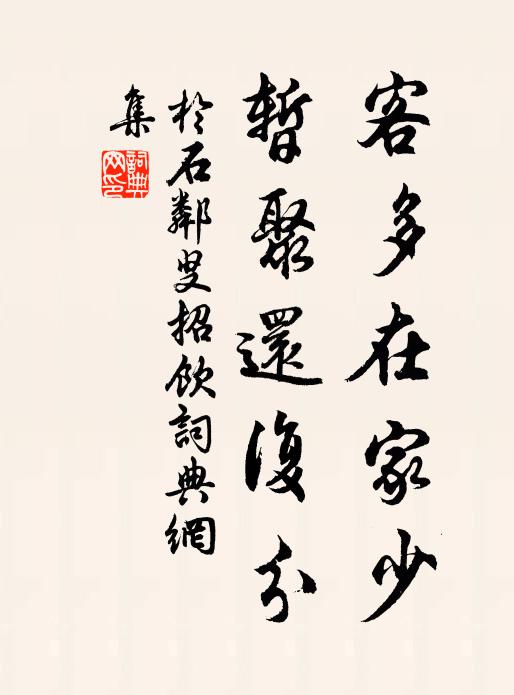 客多在家少
暫聚還復分
於石鄰叟招飲詞典網
集
詞典
网印